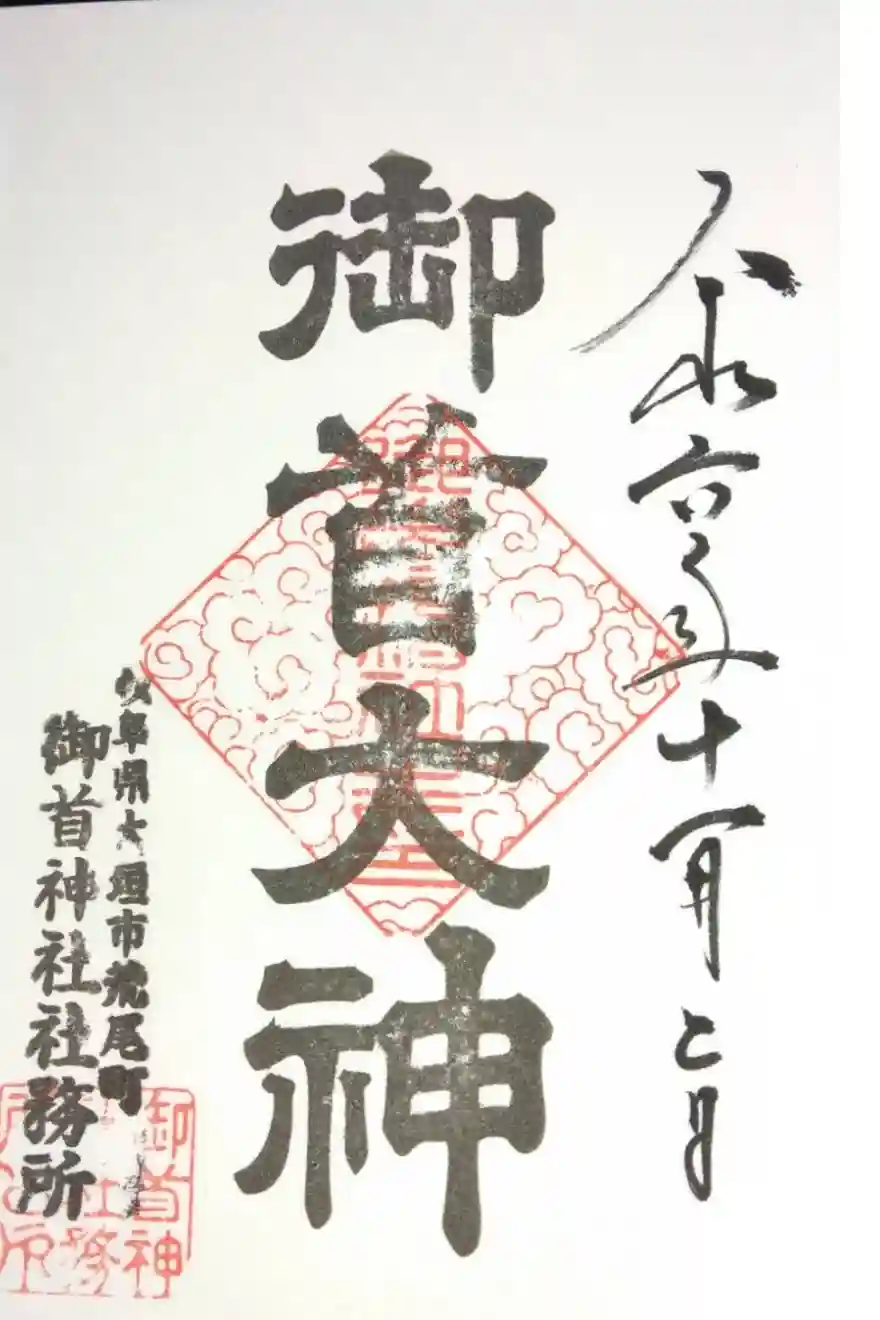 令和
年十一月二日
御首大神
岐阜県大垣市荒尾町
御首神社社務所
御首神
社務
所之印